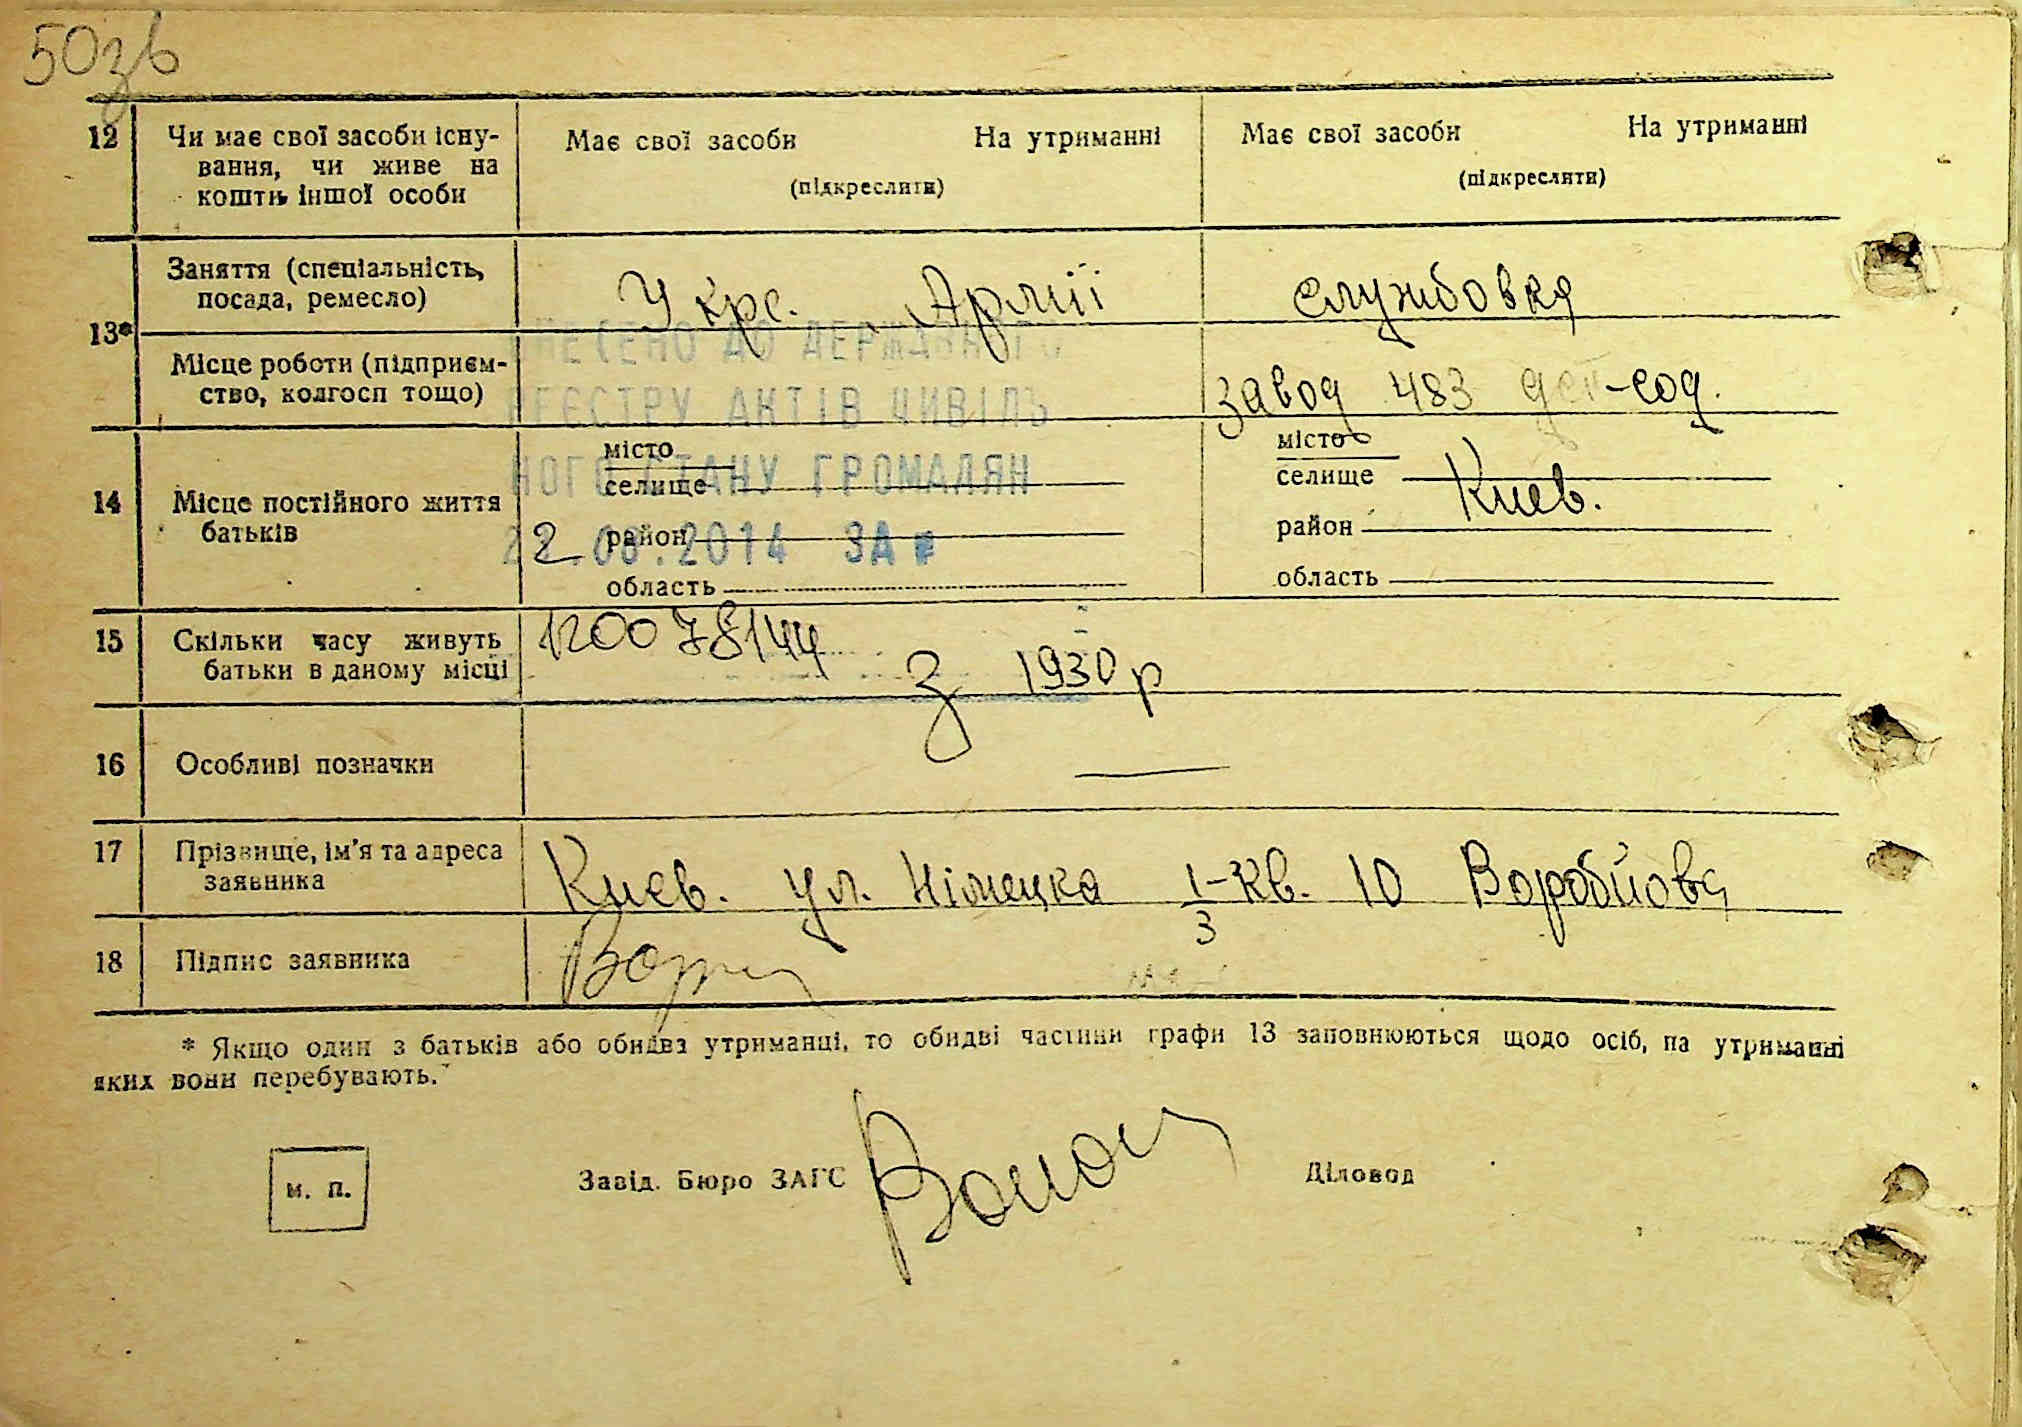 50зв
12 Чи має свої засоби існу- Має свої засоби На утриманні Має свої засоби На утриманні
вання, чи живе на (підкреслити) (підкреслити)
кошти іншої особи
13* Заняття (спеціальність, У Крс. Армії службовка
посада, ремесло)
ВНЕСЕНО ДО ДЕРЖАВНОГО
Місце роботи (підприєм- завод 483 дет-сод.
ство, колгосп тощо)
РЕЄСТРУ АКТІВ ЦИВІЛЬ
НОГО СТАНУ ГРОМАДЯН
14 Місце постійного життя місто місто
батьків селище селище Киев.
район район
22.08.2014 ЗА №
область область
15 Скільки часу живуть 120078144
батьки в даному місці з 1930 р
16 Особливі позначки —
17 Прізвище, ім'я та адреса Киев. ул. Німецка 1/3 - кв. 10 Воробйова
заявника
18 Підпис заявника
* Якщо один з батьків або обидва утриманці, то обидві частини графи 13 заповнюються щодо осіб, на утриманні
яких вони перебувають.
м. п. Завід. Бюро ЗАГС Діловод